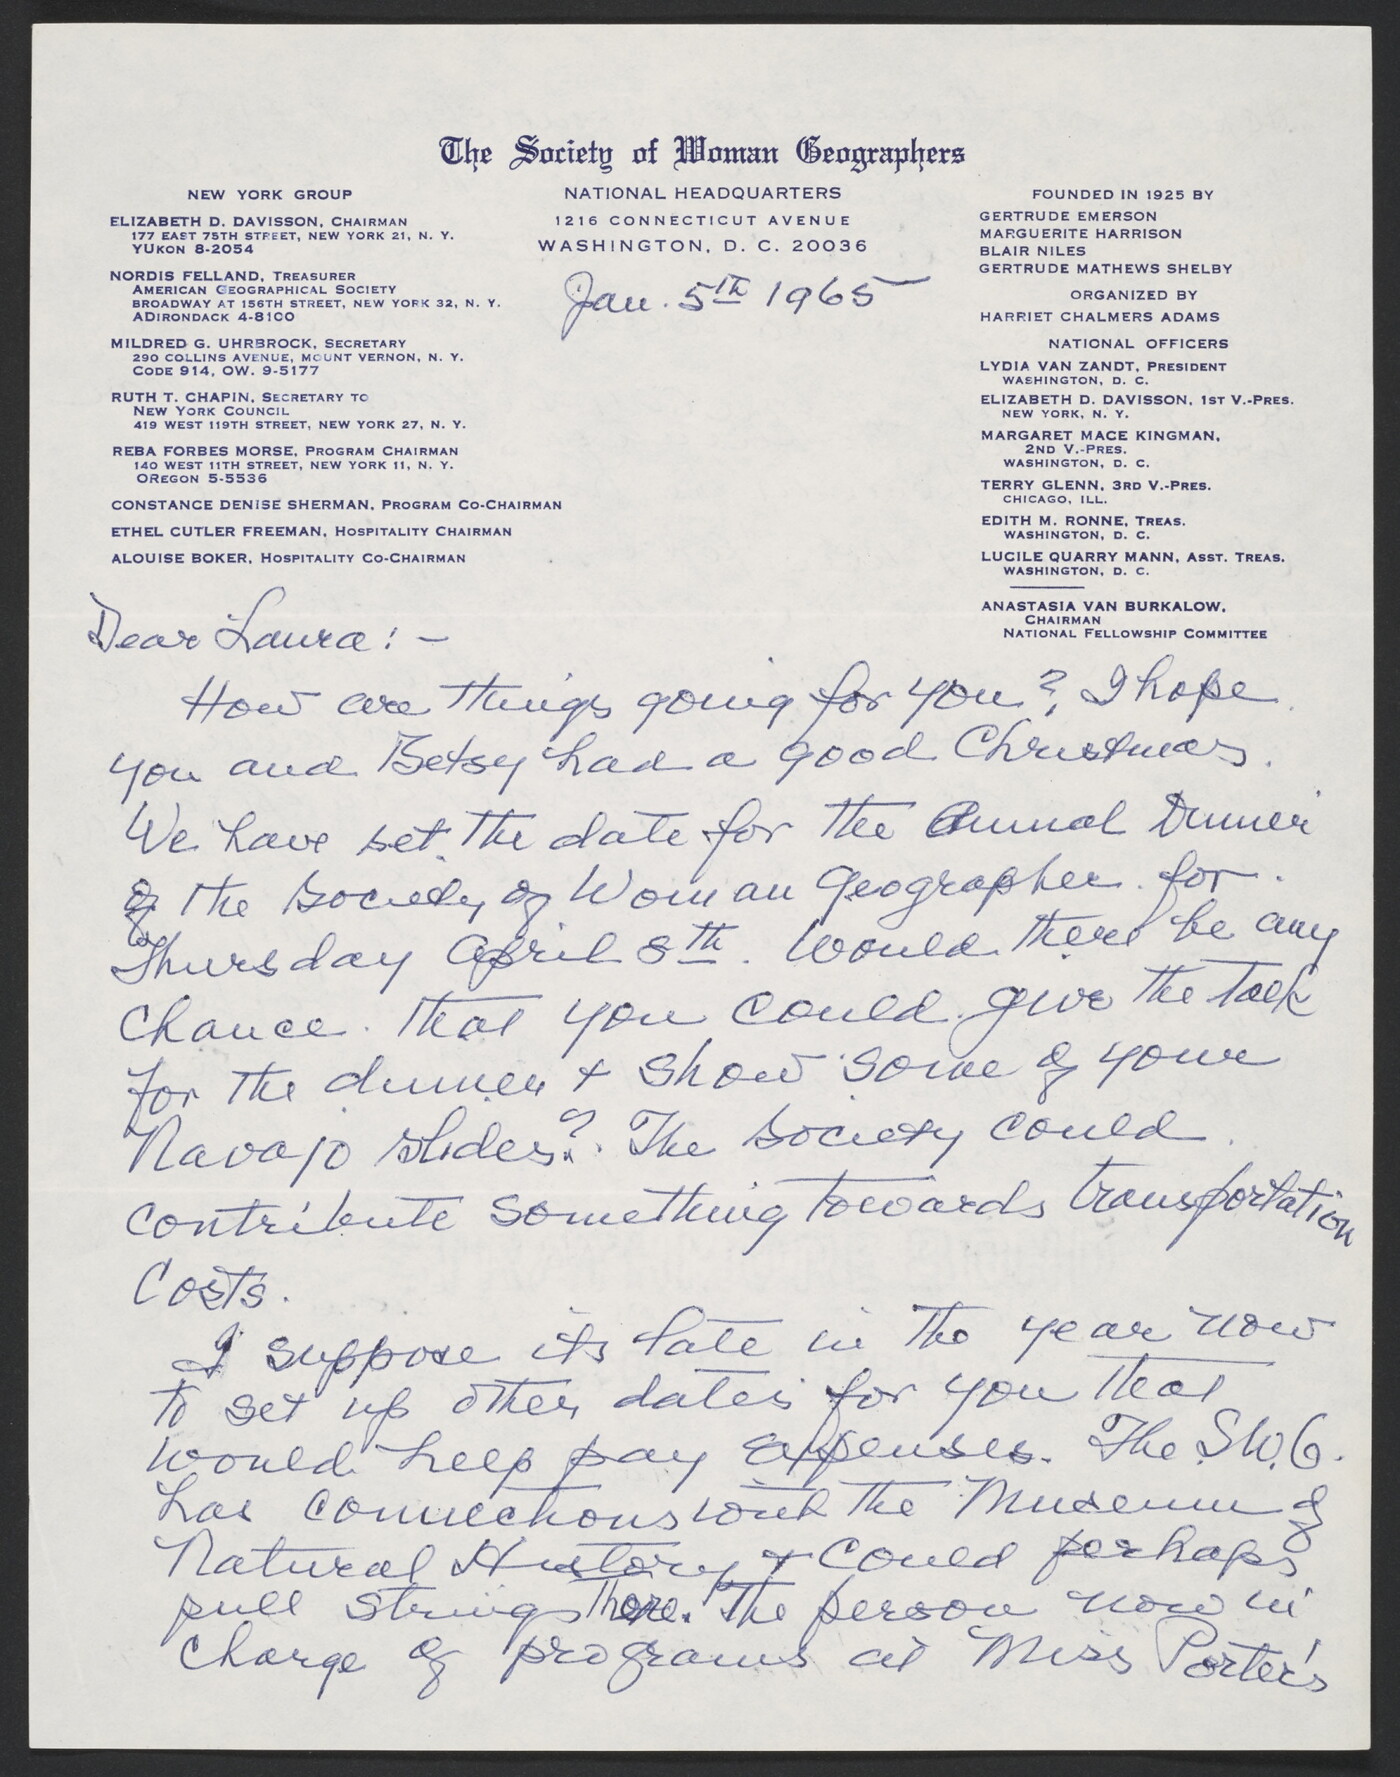 The Society of Woman Geographers
NEW YORK GROUP
ELIZABETH D. DAVISSON, CHAIRMAN
177 EAST 75TH STREET, NEW YORK 21, N. Y.
YUKON 8-2054
NORDIS FELLAND, TREASURER
AMERICAN GEOGRAPHICAL SOCIETY
BROADWAY AT 156TH STREET, NEW YORK 32, N. Y.
ADIRONDACK 4-8100
MILDRED G. UHRBROCK, SECRETARY
290 COLLINS AVENUE, MOUNT VERNON, N. Y.
CODE 914, OW. 9-5177
RUTH T. CHAPIN, SECRETARY TO
NEW YORK COUNCIL
419 WEST 119TH STREET, NEW YORK 27, N. Y.
REBA FORBES MORSE, PROGRAM CHAIRMAN
140 WEST 11TH STREET, NEW YORK 11, N. Y.
OREGON 5-5536
CONSTANCE DENISE SHERMAN, PROGRAM CO-CHAIRMAN
ETHEL CUTLER FREEMAN, HOSPITALITY CHAIRMAN
ALOUISE BOKER, HOSPITALITY CO-CHAIRMAN
NATIONAL HEADQUARTERS
1216 CONNECTICUT AVENUE
WASHINGTON, D. C. 20036
Jan. 5th 1965
FOUNDED IN 1925 BY
GERTRUDE EMERSON
MARGUERITE HARRISON
BLAIR NILES
GERTRUDE MATHEWS SHELBY
ORGANIZED BY
HARRIET CHALMERS ADAMS
NATIONAL OFFICERS
LYDIA VAN ZANDT, PRESIDENT
WASHINGTON, D. C.
ELIZABETH D. DAVISSON, 1ST V.-PRES.
NEW YORK, N. Y.
MARGARET MACE KINGMAN,
2ND V.-PRES.
WASHINGTON, D. C.
TERRY GLENN, 3RD V.-PRES.
CHICAGO, ILL.
EDITH M. RONNE, TREAS.
WASHINGTON, D. C.
LUCILE QUARRY MANN, ASST. TREAS.
WASHINGTON, D. C.
ANASTASIA VAN BURKALOW,
CHAIRMAN
NATIONAL FELLOWSHIP COMMITTEE
Dear Laura: -
How are things going for you? I hope
you and Betsy had a good Christmas.
We have set the date for the Annual Dinner
of the Society of Woman Geographer for
Thursday April 8th. Would there be any
chance that you could give the talk
for the dinner + show some of your
Navajo slides? The Society could
contribute something towards transportation
costs.
I suppose its late in the year now
to set up other dates for you that
would help pay expenses. The S.W.G.
has connections with the Museum of
Natural History + could perhaps
pull strings there. The person now in
charge of programs at Miss Porter's